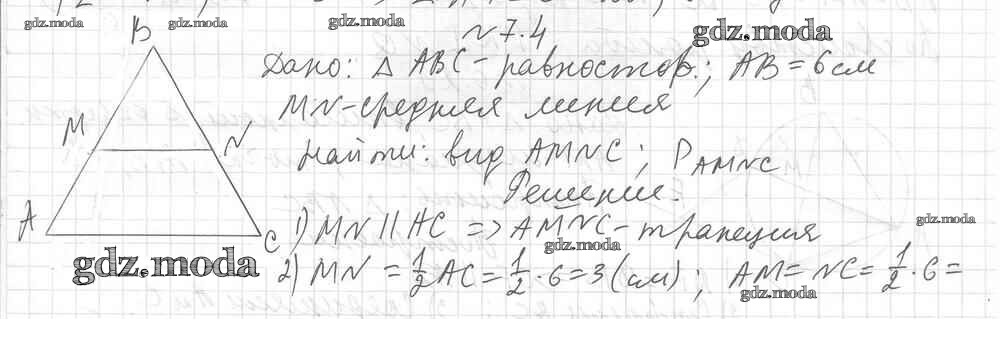 №7.4
Дано: △ABC - равностор.; AB = 6 см
MN - средняя линия
Найти: вид AMNC; P AMNC
Решение:
1) MN || AC => AMNC - трапеция
2) MN = 1/2 AC = 1/2 · 6 = 3 (см); AM = NC = 1/2 · 6 =
B
M
N
A
C
gdz.moda
gdz.moda
gdz.moda
gdz.moda
gdz.moda
gdz.moda
gdz.moda
gdz.moda